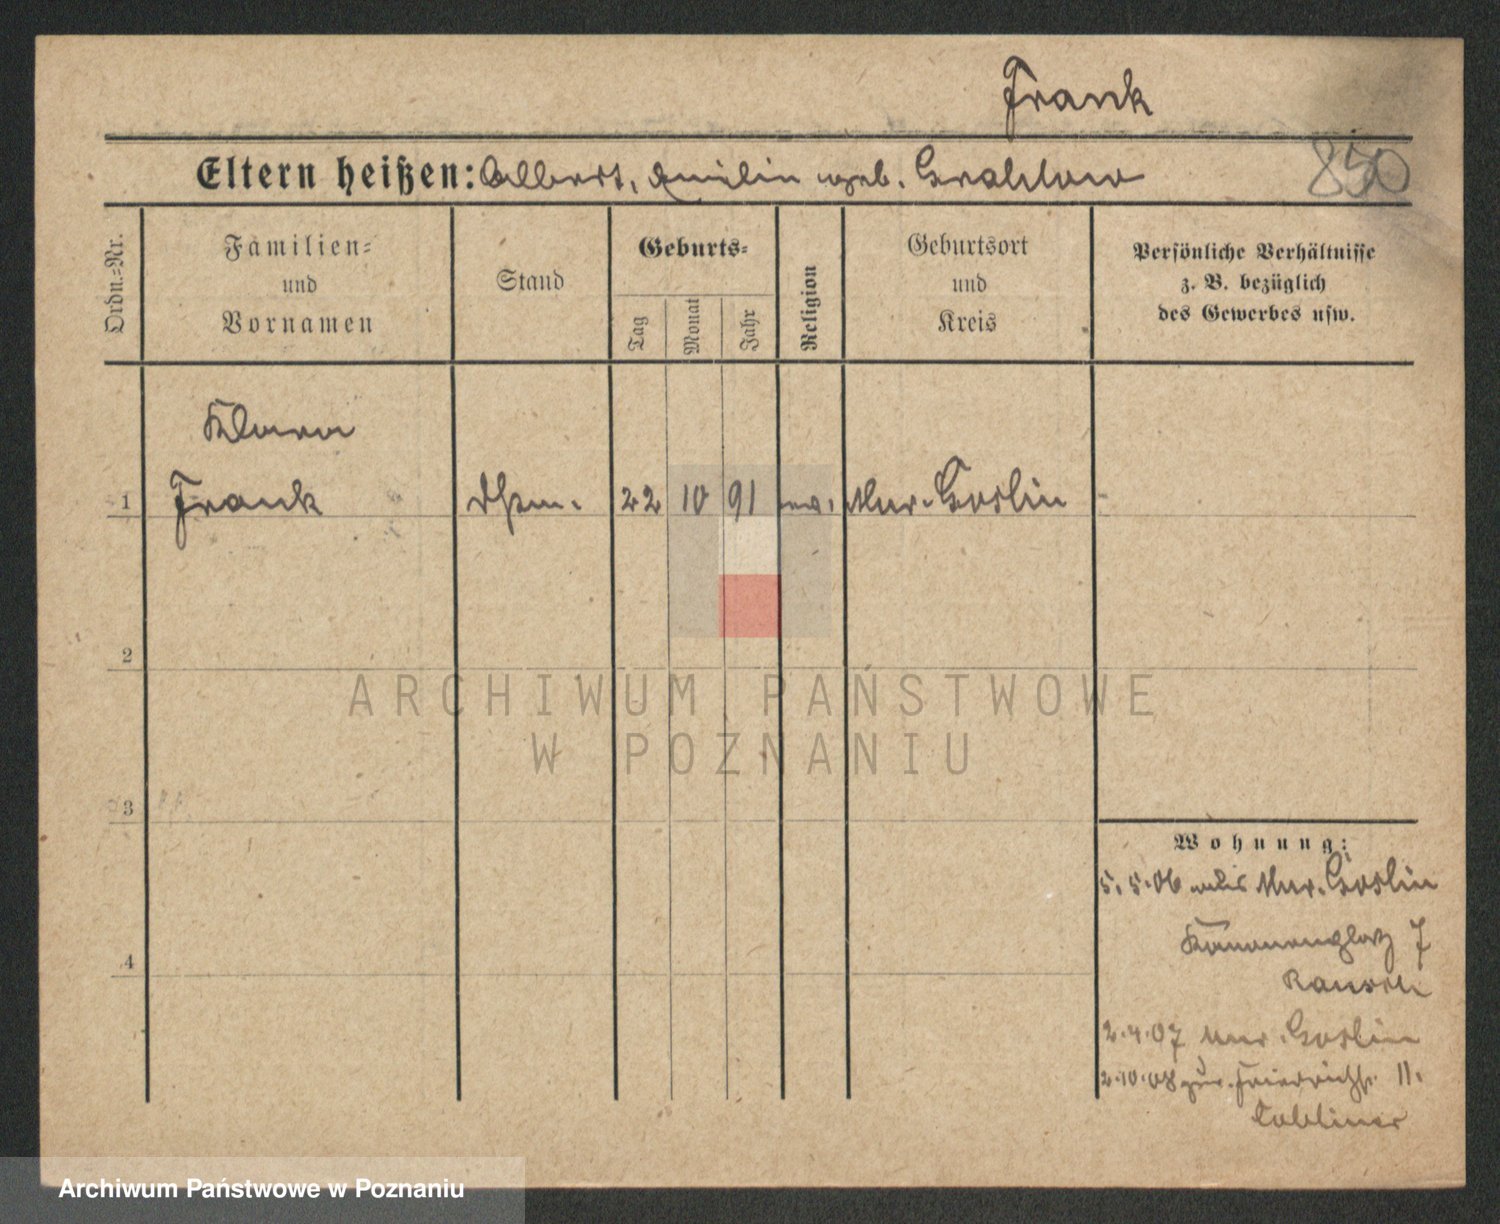 Frank
850
Eltern heißen: Albert, Emilie geb. Grablow
Ordn.=Nr.
Familien=
und
Vornamen
Stand
Geburts=
Tag
Monat
Jahr
Religion
Geburtsort
und
Kreis
Persönliche Verhältnisse
z. B. bezüglich
des Gewerbes usw.
Klara
1 Frank Dstm. 22 10 91 ev. Mur. Goslin
2
3
4
ARCHIWUM PAŃSTWOWE
W POZNANIU
Wohnung:
5. 5. 06 Mur. Goslin
Kanonenplatz 7
2. 4. 07 Mur. Goslin
2. 10. 08 zur. Friedrichstr. 11.
Archiwum Państwowe w Poznaniu